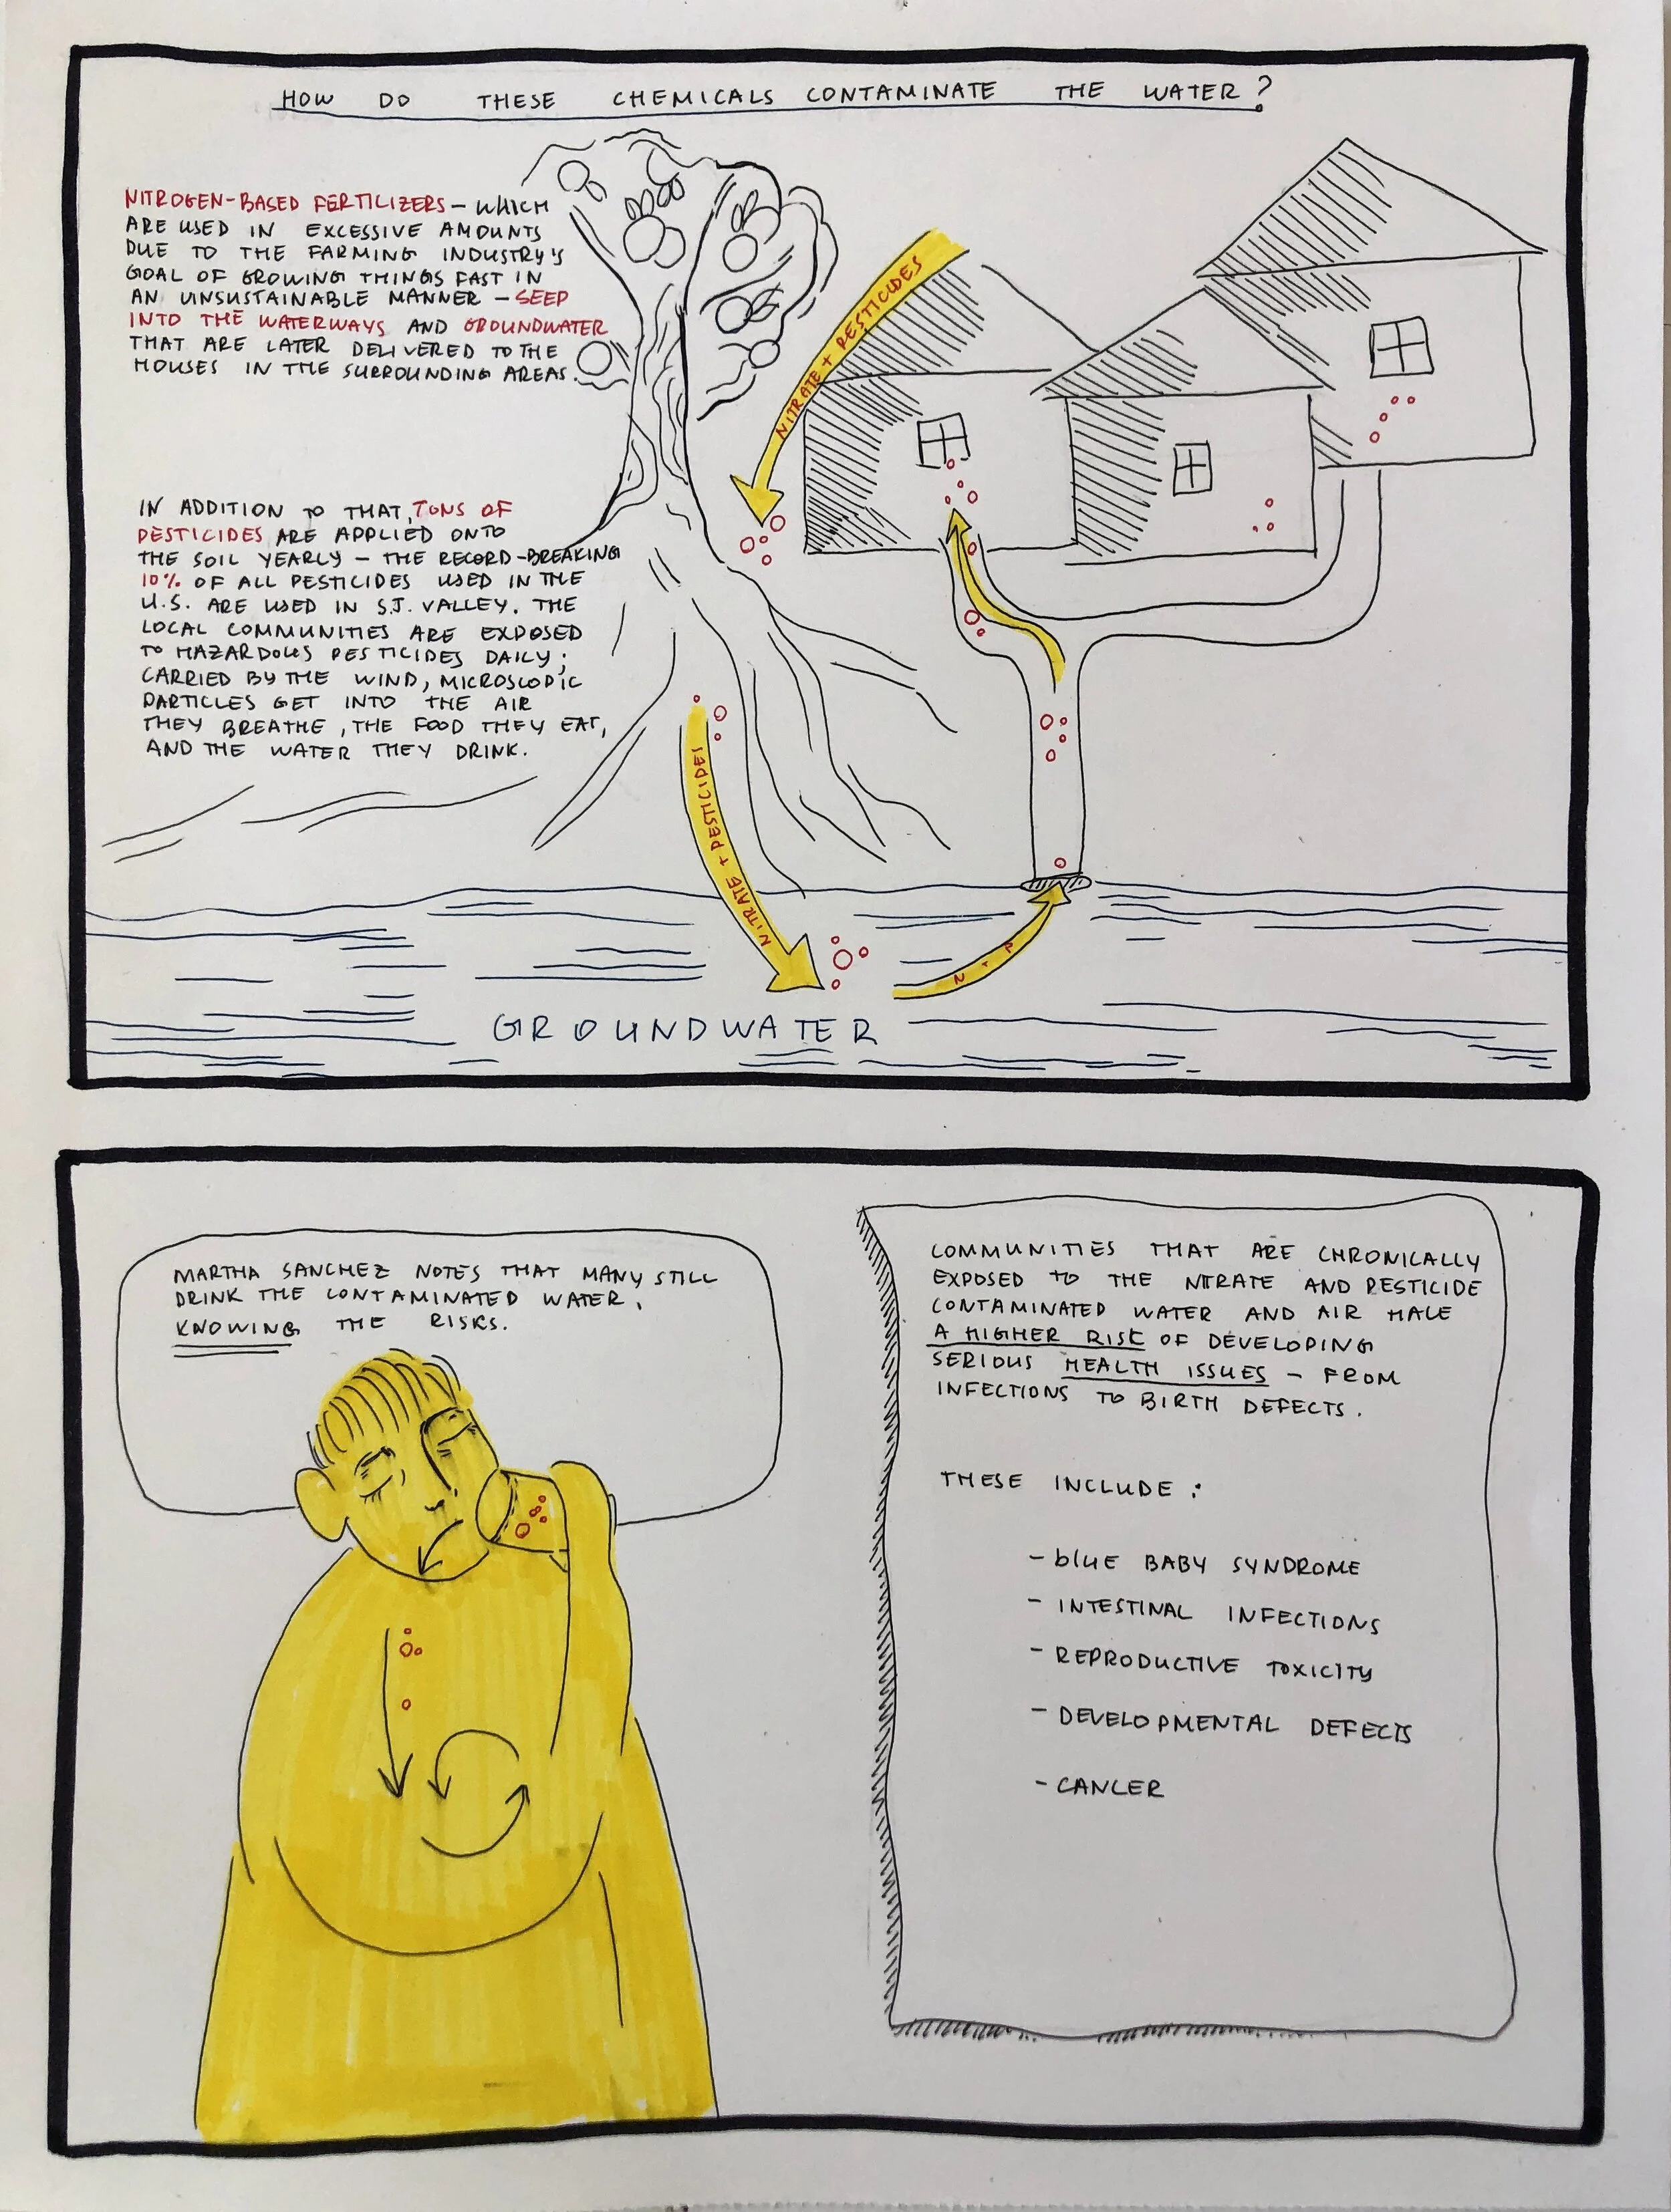 HOW DO THESE CHEMICALS CONTAMINATE THE WATER?
NITROGEN-BASED FERTILIZERS - WHICH
ARE USED IN EXCESSIVE AMOUNTS
DUE TO THE FARMING INDUSTRY'S
GOAL OF GROWING THINGS FAST IN
AN UNSUSTAINABLE MANNER - SEEP
INTO THE WATERWAYS AND GROUNDWATER
THAT ARE LATER DELIVERED TO THE
HOUSES IN THE SURROUNDING AREAS.
IN ADDITION TO THAT, TONS OF
PESTICIDES ARE APPLIED ONTO
THE SOIL YEARLY - THE RECORD-BREAKING
10% OF ALL PESTICIDES USED IN THE
U.S. ARE USED IN S.J. VALLEY. THE
LOCAL COMMUNITIES ARE EXPOSED
TO HAZARDOUS PESTICIDES DAILY;
CARRIED BY THE WIND, MICROSCOPIC
PARTICLES GET INTO THE AIR
THEY BREATHE, THE FOOD THEY EAT,
AND THE WATER THEY DRINK.
NITRATE + PESTICIDES
NITRATE + PESTICIDES
N + P
GROUNDWATER
MARTHA SANCHEZ NOTES THAT MANY STILL
DRINK THE CONTAMINATED WATER,
KNOWING THE RISKS.
COMMUNITIES THAT ARE CHRONICALLY
EXPOSED TO THE NTRATE AND PESTICIDE
CONTAMINATED WATER AND AIR HALE
A HIGHER RISK OF DEVELOPING
SERIOUS HEALTH ISSUES - FROM
INFECTIONS TO BIRTH DEFECTS.
THESE INCLUDE:
- blUE BABY SYNDROME
- INTESTINAL INFECTIONS
- REPRODUCTIVE TOXICITY
- DEVELOPMENTAL DEFECTS
- CANCER